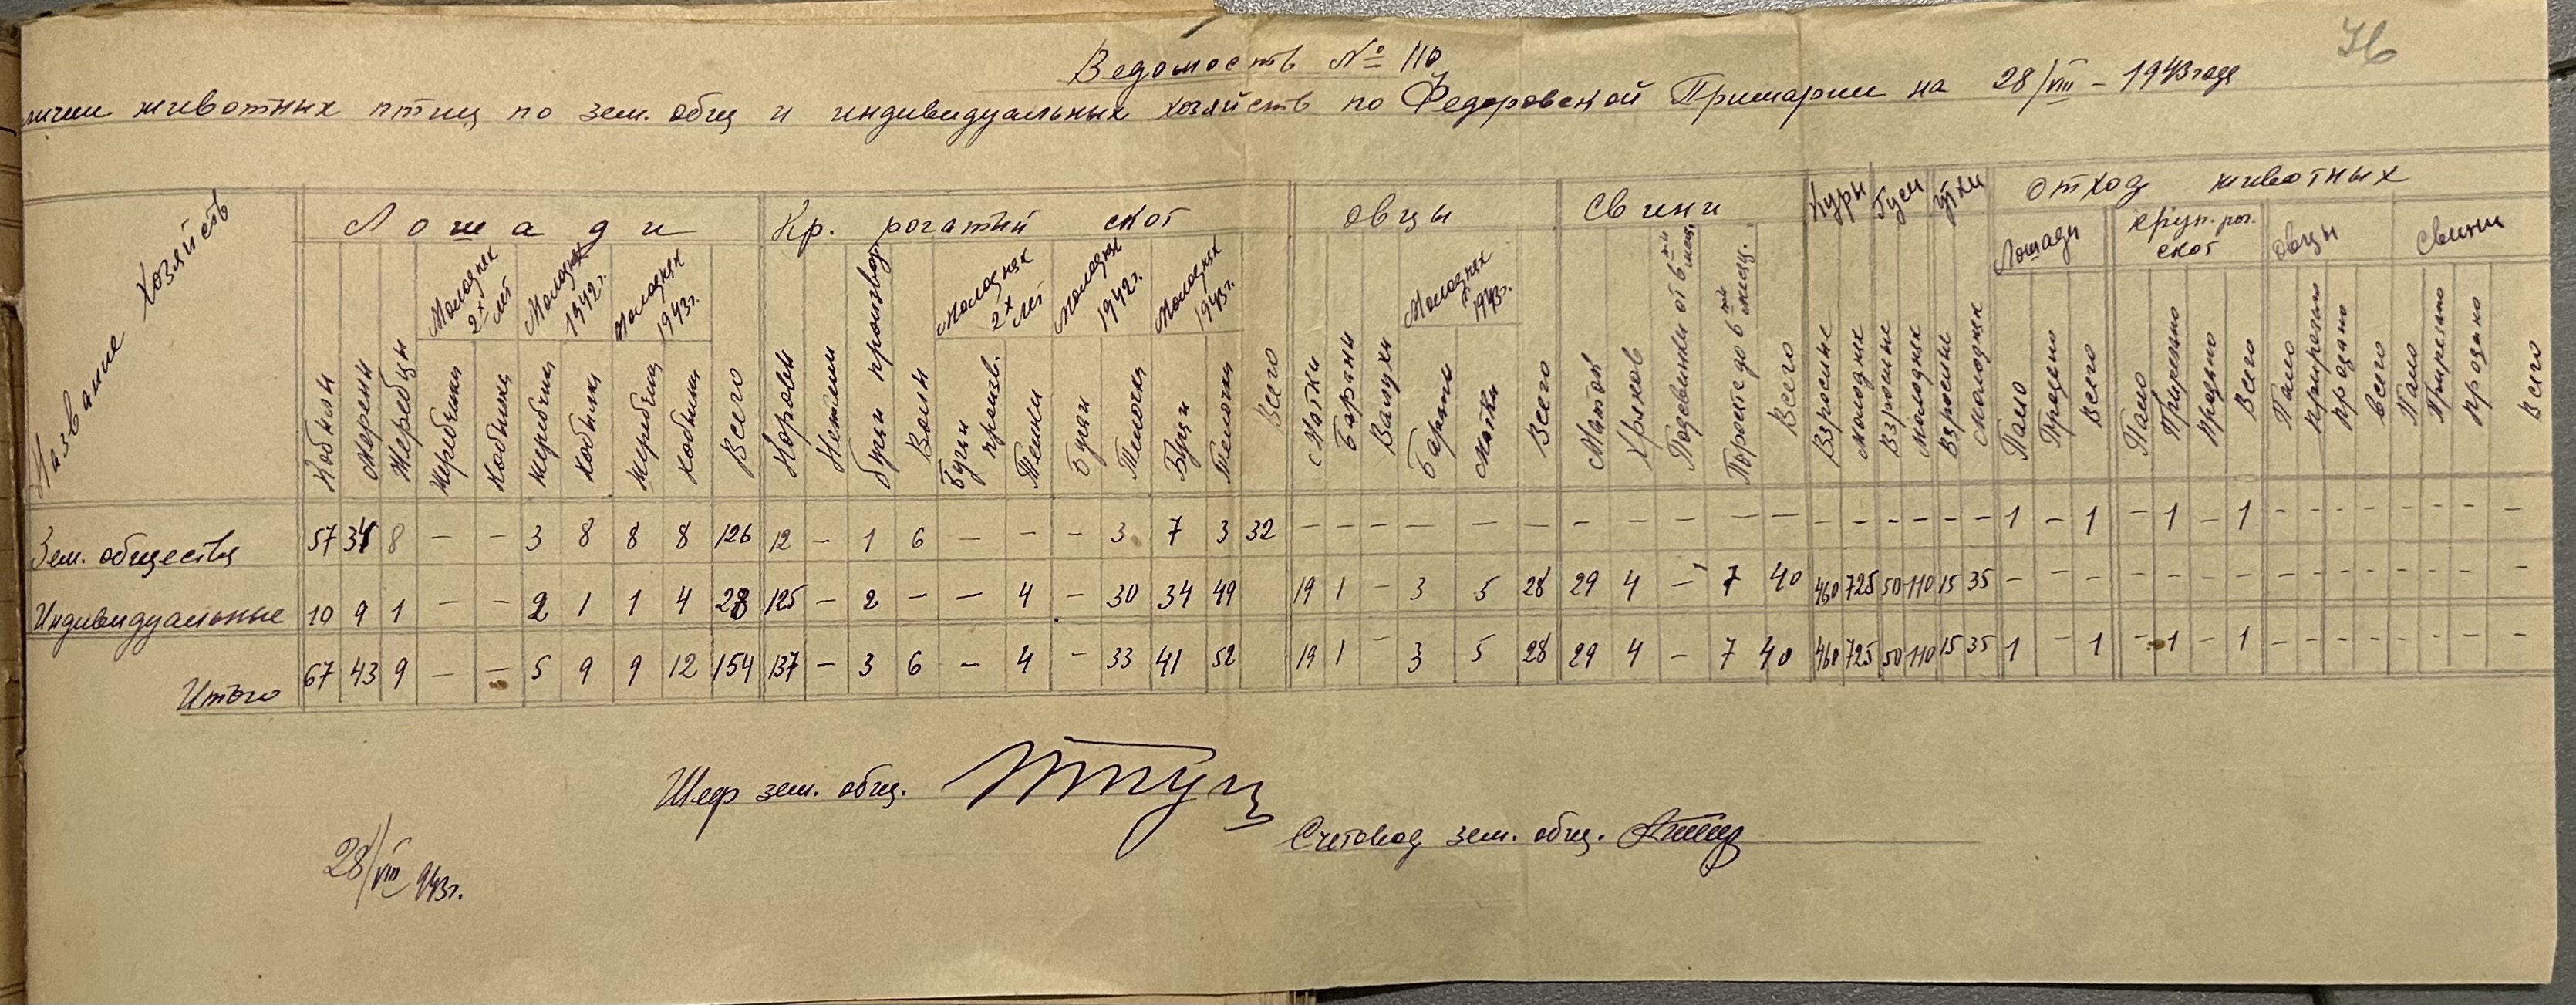 76
Ведомость № 110
личии животных птиц по зем. общ и индивидуальных хозяйств по Федоровской Примарии на 28/VIII – 1943 года
Название Хозяйств
Лошади Кр. рогатый скот Овцы Свини Куры Гуси утки Отход животных
Молодняк 2х лет Молодняк 1942 г. Молодняк 1943 г. Молодняк 2х лет Молодняк 1942 г. Молодняк 1943 г. Молодняк 1943 г. Лошади круп. рог. скот Овцы Свини
Кобылы Мерены Жеребцы Жеребчики Кобылки Жеребчики Кобылки Жеребчики Кобылки Всего Коровы Нетели Бугаи производ. Волы Бугаи произв. Телки Бугаи Телочки Бугаи Телочки Всего Матки Бараны Валухи Бараны Матки Всего Маток Хряков Подсвинки от 6 ти мец. Поросята до 6 ти месяц. Всего Взрослые молодняк Взрослые молодняк Взрослые молодняк Пало Продано Всего Пало Прирезано Продано Всего Пало прирезано продано всего Пало Прирезано продано Всего
Зем. общества 57 34 8 – – 3 8 8 8 126 12 – 1 6 – – – 3 7 3 32 – – – – – – – – – – – – – – – – – 1 – 1 – 1 – 1 – – – – – – – –
Индивидуальные 10 9 1 – – 2 1 1 4 28 125 – 2 – – 4 – 30 34 49 19 1 – 3 5 28 29 4 – 7 40 460 725 50 110 15 35 – – – – – – – – – – – – – – –
Итого 67 43 9 – – 5 9 9 12 154 137 – 3 6 – 4 – 33 41 52 19 1 – 3 5 28 29 4 – 7 40 460 725 50 110 15 35 1 – 1 – 1 – 1 – – – – – – – –
Шеф зем. общ.
Счетовод зем. общ.
28/VIII 943 г.